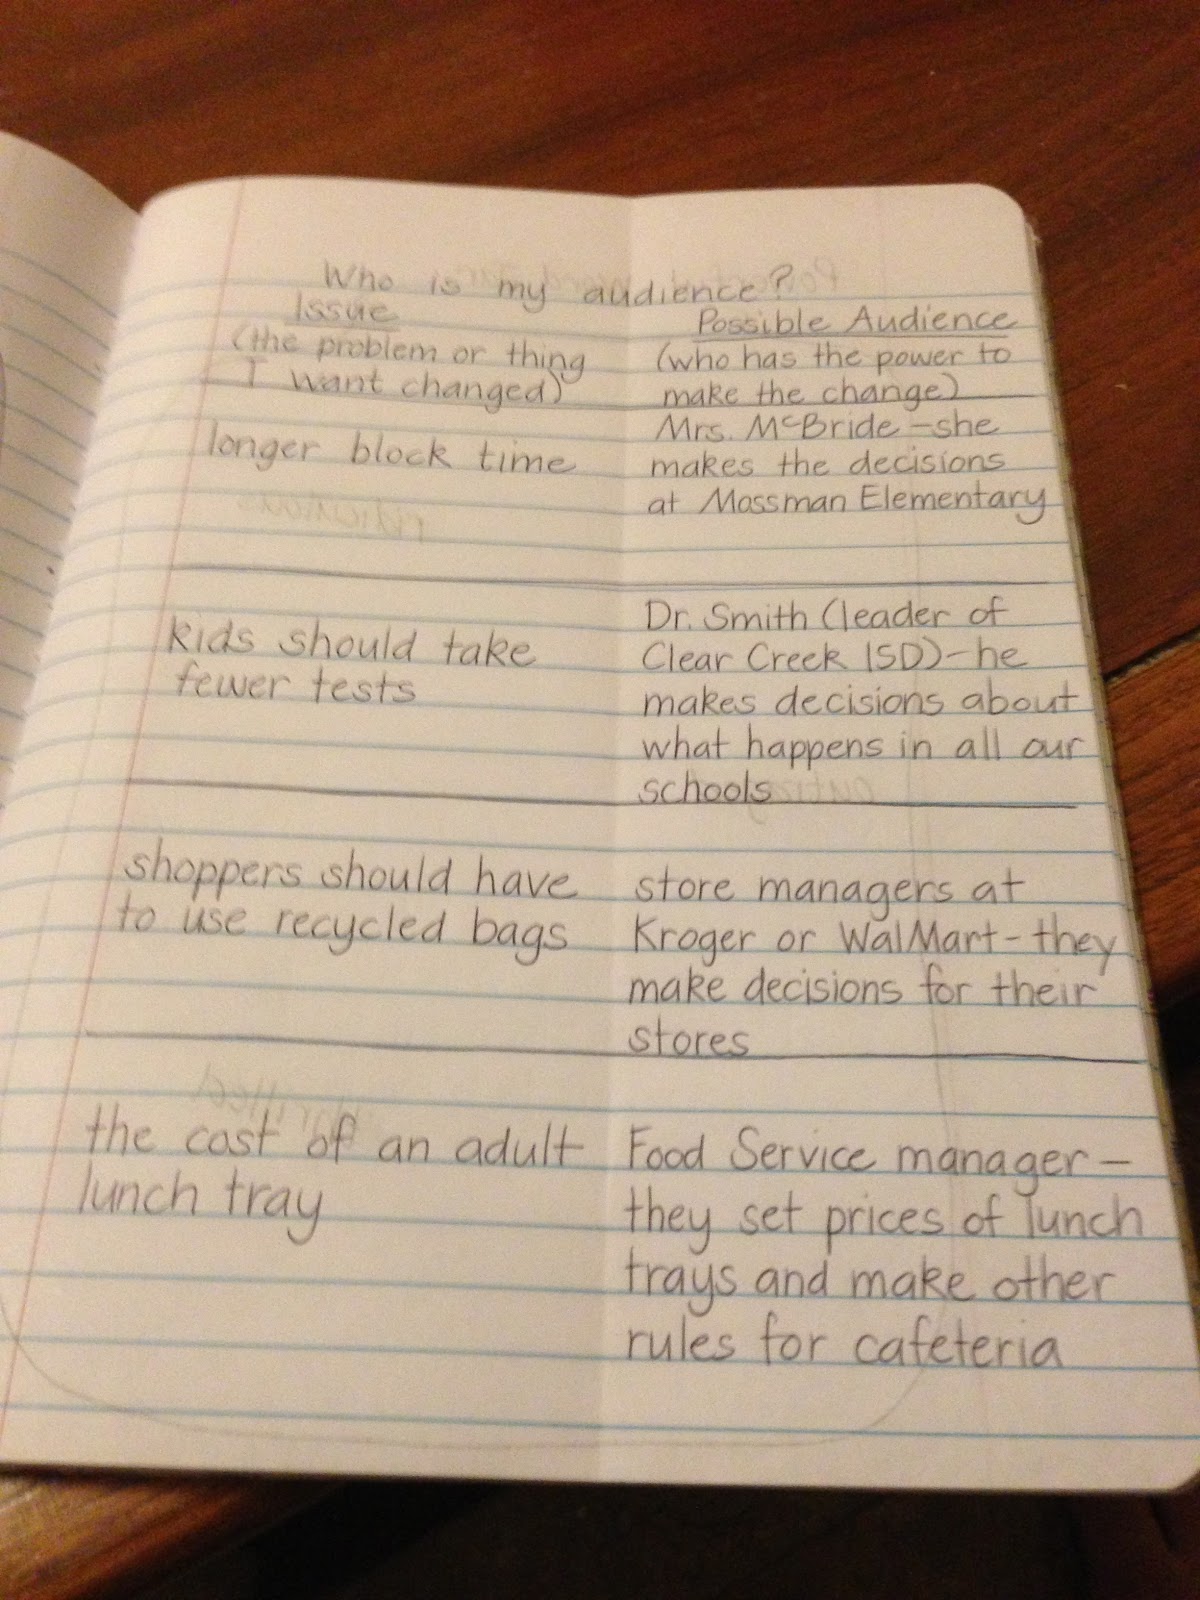 Who is my audience?
Issue
(the problem or thing
I want changed)
Possible Audience
(who has the power to
make the change)
longer block time
Mrs. McBride - she
makes the decisions
at Mossman Elementary
kids should take
fewer tests
Dr. Smith (leader of
Clear Creek ISD) - he
makes decisions about
what happens in all our
schools
shoppers should have
to use recycled bags
store managers at
Kroger or WalMart - they
make decisions for their
stores
the cost of an adult
lunch tray
Food Service manager -
they set prices of lunch
trays and make other
rules for cafeteria